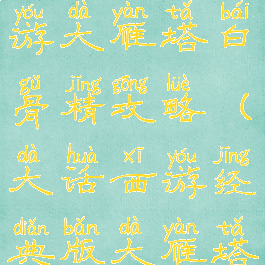 yóu dà yàn tǎ bái
游大雁塔白
gǔ jīng gōng lüè
骨精攻略（
dà huà xī yóu jīng
大话西游经
diǎn bǎn dà yàn tǎ
典版大雁塔